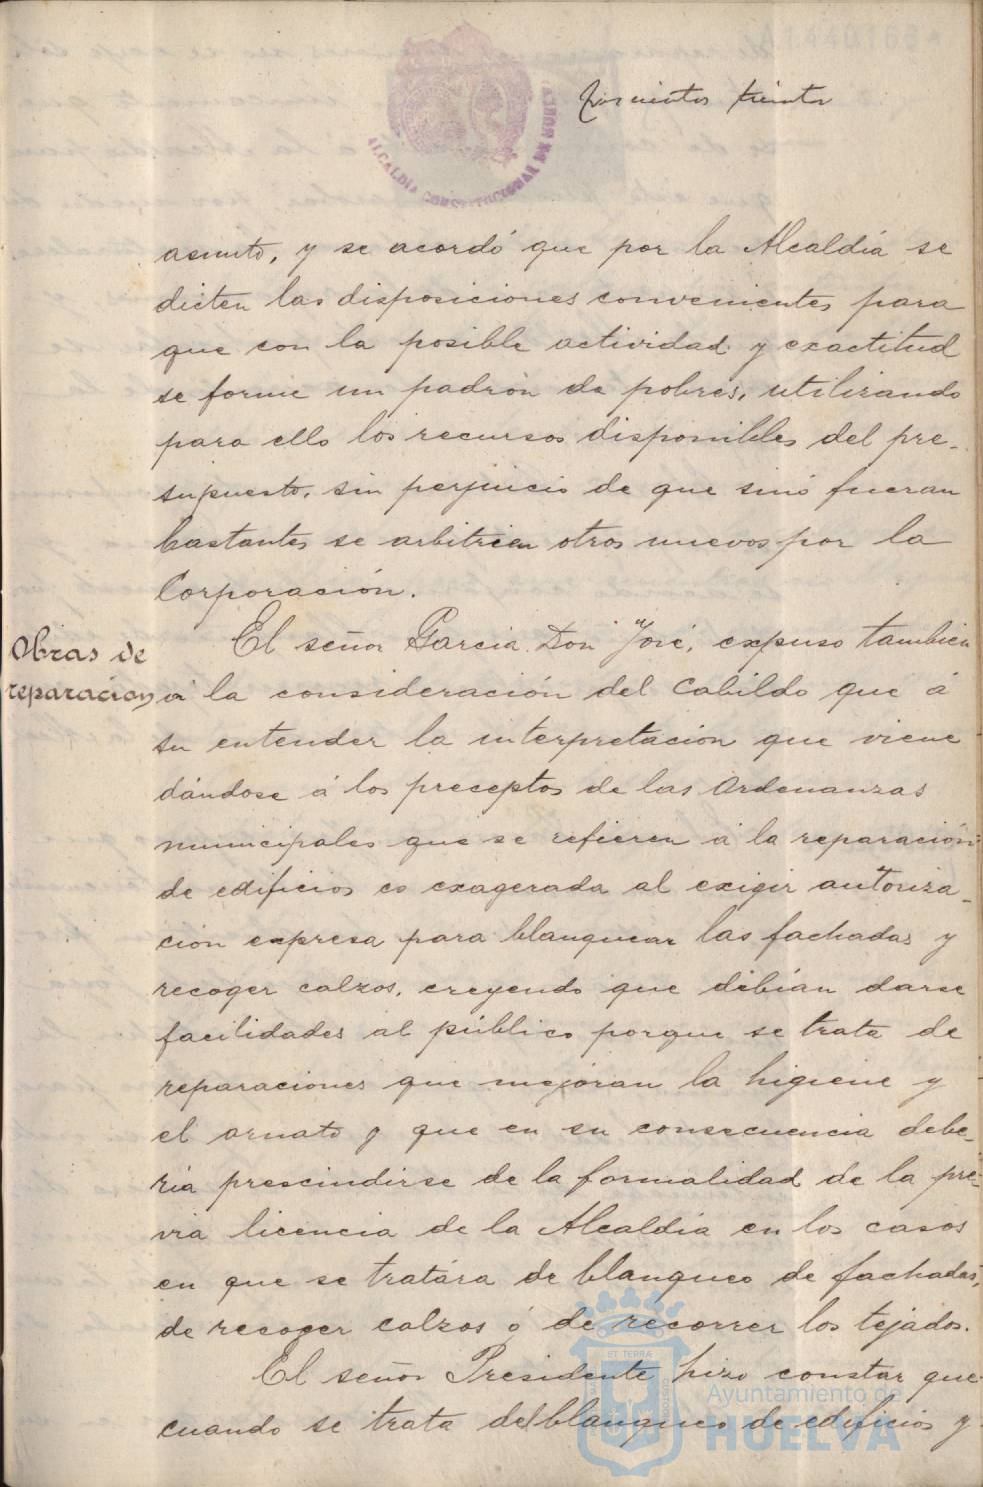 A1440168*
ALCALDÍA CONSTITUCIONAL DE HUELVA
Doscientos treinta
asunto, y se acordó que por la Alcaldía se
dicten las disposiciones convenientes para
que con la posible actividad y exactitud
se forme un padrón de pobres, utilizando
para ello los recursos disponibles del pre-
supuesto, sin perjuicio de que sinó fueran
bastantes se arbitrien otros nuevos por la
Corporación.
Obras de
reparación
El señor Garcia Don José, expuso también
á la consideración del Cabildo que á
su entender la interpretación que viene
dándose á los preceptos de las Ordenanzas
municipales que se refieren á la reparación
de edificios es exagerada al exigir autoriza-
ción expresa para blanquear las fachadas y
recoger calzos, creyendo que débian darse
facilidades al público porque se trata de
reparaciones que mejoran la higiene y
el ornato y que en su consecuencia debe-
ría prescindirse de la formalidad de la pré-
via licencia de la Alcaldía en los casos
en que se tratára de blanqueo de fachadas,
de recoger calzos ó de recorrer los tejádos.
El señor Presidente hizo constar que
cuando se trata del blanqueo de edificios y
ET TERRÆ
Ayuntamiento de
HUELVA